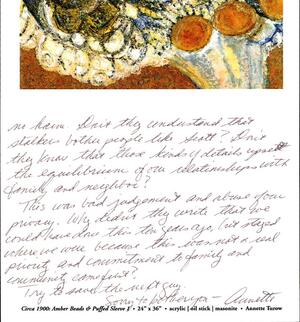 no harm. Don't they understand that
stalkers bother people like Scott? Don't
they know that those kinds of details upset
the equilibrium of our relationships with
family and neighbor?
This was bad judgement and abuse of our
privacy. Why didn't they write that we
could have done this ten years ago, but stayed
where we were because this was not a real
priority and commitment to family and
community came first?
Try to save the next guy.
Sorry to bother you — Annette
Circa 1900: Amber Beads & Puffed Sleeve I • 24" x 36" • acrylic | oil stick | masonite • Annette Turow